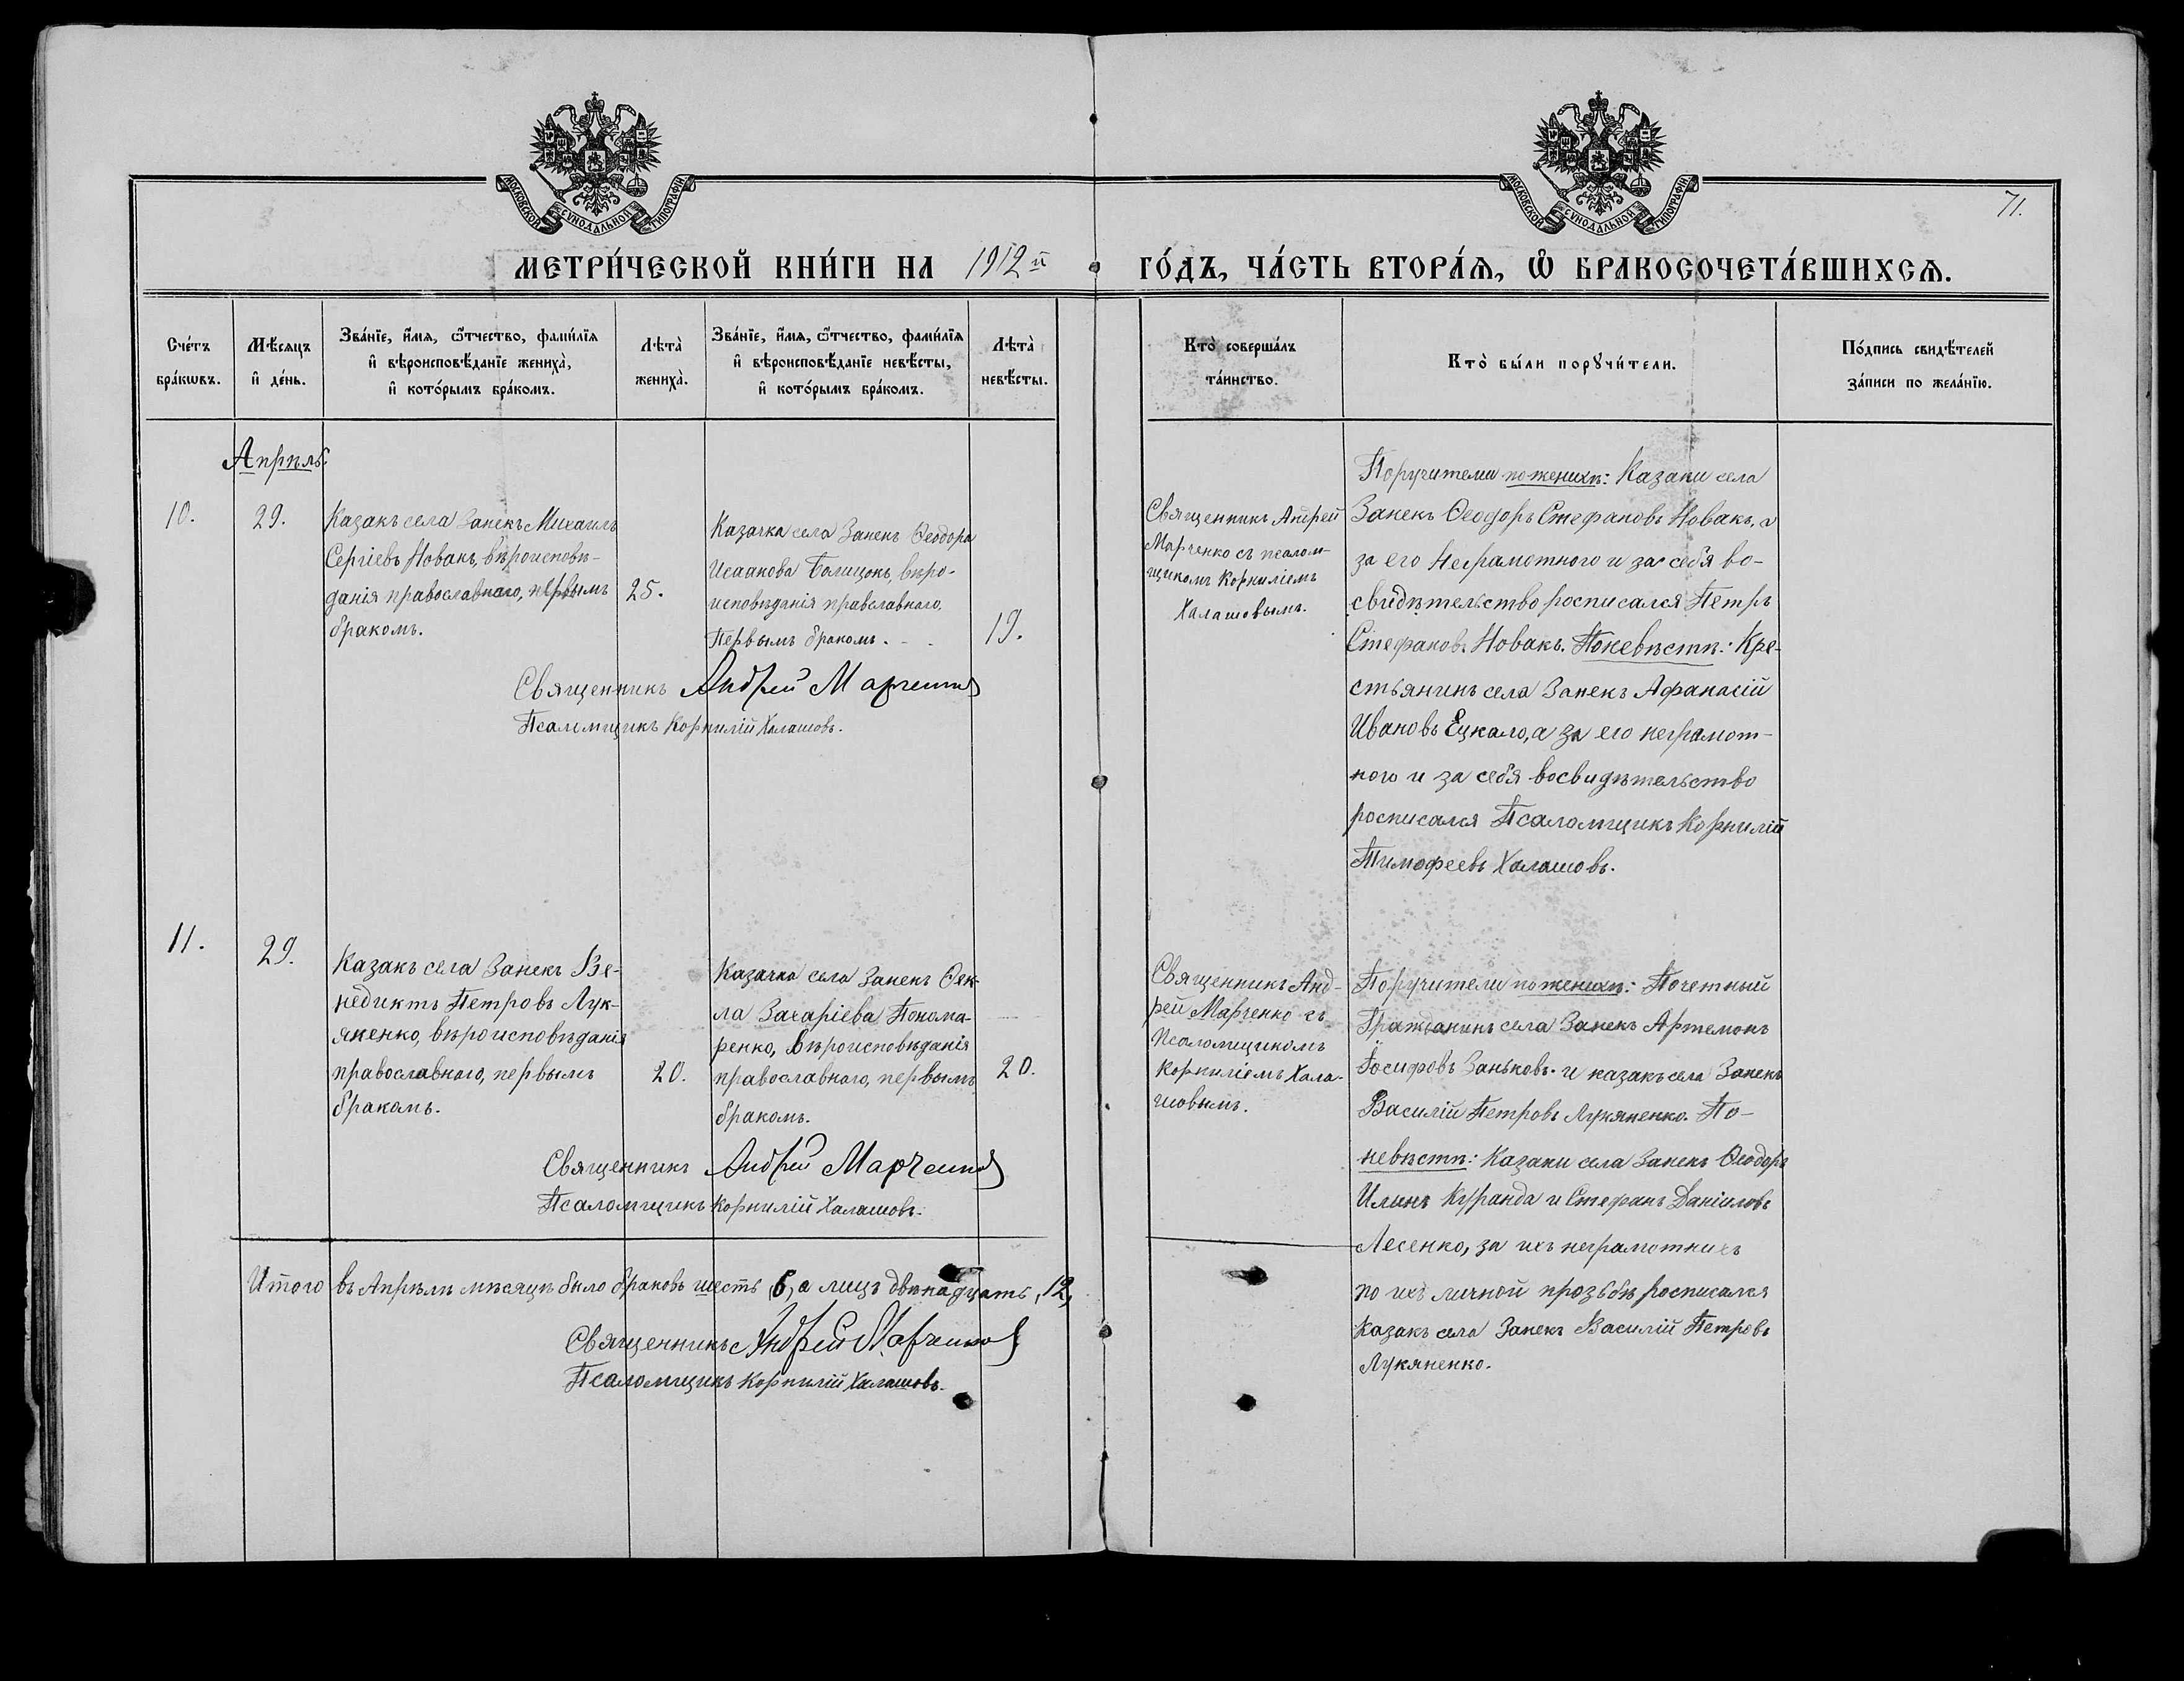 МОСКОВСКОЙ СѴНОДАЛЬНОЙ ТИПОГРАФІИ.
МОСКОВСКОЙ СѴНОДАЛЬНОЙ ТИПОГРАФІИ.
71.
МЕТРИ́ЧЕСКОЙ КНИ́ГИ НА 1912 й
ГО́ДЪ, ЧА́СТЬ ВТОРА́Ѧ, Ѡ҆ БРАКОСОЧЕТА́ВШИХСѦ.
Сче́тъ
бра́кѡвъ.
Мѣ́сяцъ
и҆ де́нь.
Зва́нїе, и҆́мѧ, ѻ҆́тчество, фами́лїѧ
и҆ вѣроисповѣ́данїе жениха̀,
и҆ кото́рымъ бра́комъ.
Лѣта̀
жениха̀.
Зва́нїе, и҆́мѧ, ѻ҆́тчество, фами́лїѧ
и҆ вѣроисповѣ́данїе невѣ́сты,
и҆ кото́рымъ бра́комъ.
Лѣта̀
невѣ́сты.
Кто̀ соверша́лъ
та́инство.
Кто̀ бы́ли порꙋчи́тели.
По́дпись свидѣ́телей
за́писи по жела́нїю.
Апрѣль.
10.
29.
Казакъ села Занекъ Михаилъ
Сергіевъ Новакъ, вѣроисповѣ-
данія православнаго, первымъ
бракомъ.
25.
Казачка села Занекъ Ѳеодора
Исаакова Балицокъ, вѣро-
исповѣданія православнаго.
Первымъ бракомъ.
19.
Священникъ Андрей Марченко
Псаломщикъ Корнилій Халашовъ.
Священникъ Андрей
Марченко съ псалом-
щикомъ Корниліемъ
Халашовымъ.
Поручители по женихѣ: Казаки села
Занекъ Ѳеодоръ Стефановъ Новакъ, а
за его неграмотного и за себя во-
свидѣтельство росписался Петръ
Стефановъ Новакъ. По невѣстѣ: Кре-
стьянинъ села Занекъ Афанасій
Ивановъ Ецкало, а за его неграмот-
ного и за себя восвидѣтельство
росписался Псаломщикъ Корнилій
Тимофеевъ Халашовъ.
11.
29.
Казакъ села Занекъ Ве-
недиктъ Петровъ Лук-
яненко, вѣроисповѣданія
православнаго, первымъ
бракомъ.
20.
Казачка села Занекъ Ѳек-
ла Захаріева Понома-
ренко, вѣроисповѣданія
православнаго, первымъ
бракомъ.
20.
Священникъ Андрей Марченко
Псаломщикъ Корнилій Халашовъ.
Священникъ Анд-
рей Марченко съ
Псаломщикомъ
Корниліемъ Хала-
шовымъ.
Поручители по женихѣ: Почетный
Гражданинъ села Занекъ Артемонъ
Іосифовъ Заньковъ. и казакъ села Занекъ
Василій Петровъ Лукяненко. По-
невѣстѣ: Казаки села Занекъ Ѳеодоръ
Илинъ Куранда и Стефанъ Даніиловъ
Лесенко, за ихъ неграмотныхъ
по ихъ личной прозьбѣ росписался
Казакъ села Занекъ Василій Петровъ
Лукяненко.
Итого въ Апрѣлѣ мѣсяцѣ было браковъ шесть, 6, а лицъ двѣнадцать, 12,
Священникъ Андрей Марченко
Псаломщикъ Корнилій Халашовъ.